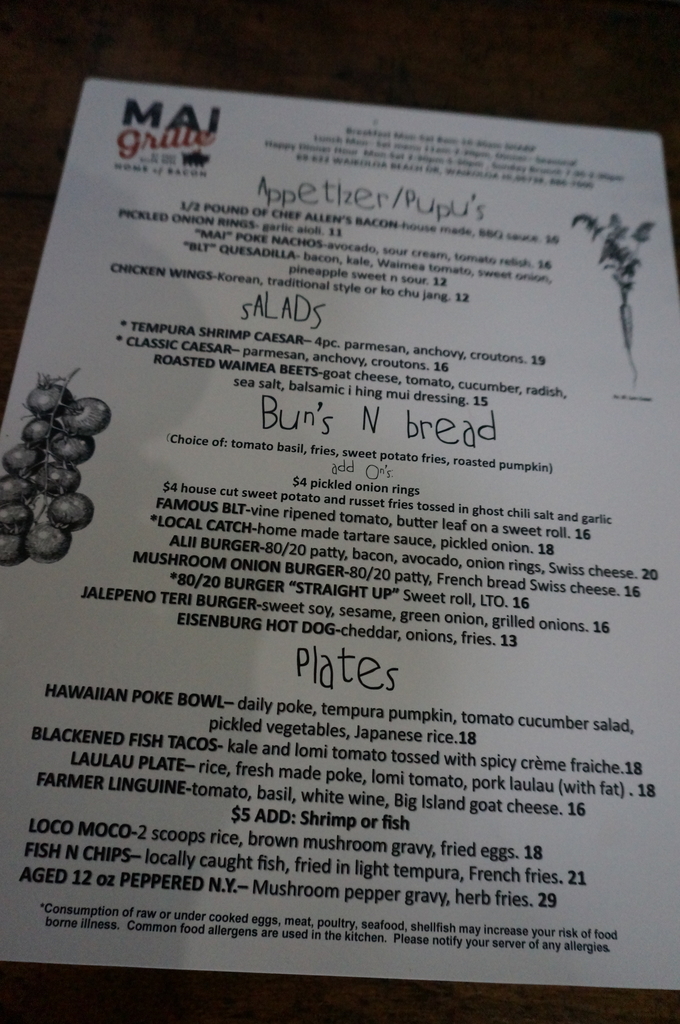 MAI
grille
HOME of BACON
Breakfast Mon-Sat
Lunch Mon- Sat
Happy Dinner Hour Mon-Sat Sunday Brunch
WAIKOLOA BEACH DR, WAIKOLOA
Appetizer/Pupu's
1/2 POUND OF CHEF ALLEN'S BACON-house made, BBQ sauce. 16
PICKLED ONION RINGS- garlic aioli. 11
"MAI" POKE NACHOS-avocado, sour cream, tomato relish. 16
"BLT" QUESADILLA- bacon, kale, Waimea tomato, sweet onion,
pineapple sweet n sour. 12
CHICKEN WINGS-Korean, traditional style or ko chu jang. 12
SALADS
* TEMPURA SHRIMP CAESAR– 4pc. parmesan, anchovy, croutons. 19
* CLASSIC CAESAR– parmesan, anchovy, croutons. 16
ROASTED WAIMEA BEETS-goat cheese, tomato, cucumber, radish,
sea salt, balsamic i hing mui dressing. 15
Bun's N bread
(Choice of: tomato basil, fries, sweet potato fries, roasted pumpkin)
add On's:
$4 pickled onion rings
$4 house cut sweet potato and russet fries tossed in ghost chili salt and garlic
FAMOUS BLT-vine ripened tomato, butter leaf on a sweet roll. 16
*LOCAL CATCH-home made tartare sauce, pickled onion. 18
ALII BURGER-80/20 patty, bacon, avocado, onion rings, Swiss cheese. 20
MUSHROOM ONION BURGER-80/20 patty, French bread Swiss cheese. 16
*80/20 BURGER "STRAIGHT UP" Sweet roll, LTO. 16
JALEPENO TERI BURGER-sweet soy, sesame, green onion, grilled onions. 16
EISENBURG HOT DOG-cheddar, onions, fries. 13
Plates
HAWAIIAN POKE BOWL– daily poke, tempura pumpkin, tomato cucumber salad,
pickled vegetables, Japanese rice.18
BLACKENED FISH TACOS- kale and lomi tomato tossed with spicy crème fraiche.18
LAULAU PLATE– rice, fresh made poke, lomi tomato, pork laulau (with fat) . 18
FARMER LINGUINE-tomato, basil, white wine, Big Island goat cheese. 16
$5 ADD: Shrimp or fish
LOCO MOCO-2 scoops rice, brown mushroom gravy, fried eggs. 18
FISH N CHIPS– locally caught fish, fried in light tempura, French fries. 21
AGED 12 oz PEPPERED N.Y.– Mushroom pepper gravy, herb fries. 29
*Consumption of raw or under cooked eggs, meat, poultry, seafood, shellfish may increase your risk of food
borne illness. Common food allergens are used in the kitchen. Please notify your server of any allergies.